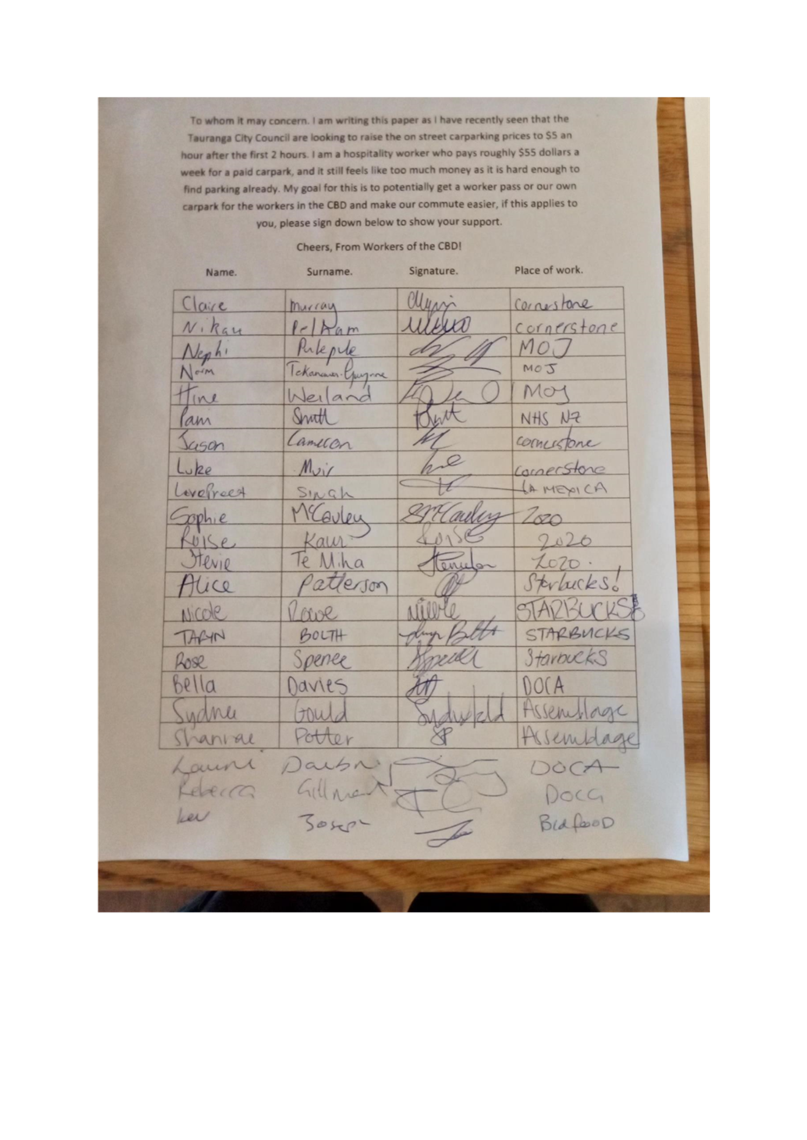 To whom it may concern. I am writing this paper as I have recently seen that the
Tauranga City Council are looking to raise the on street carparking prices to $5 an
hour after the first 2 hours. I am a hospitality worker who pays roughly $55 dollars a
week for a paid carpark, and it still feels like too much money as it is hard enough to
find parking already. My goal for this is to potentially get a worker pass or our own
carpark for the workers in the CBD and make our commute easier, if this applies to
you, please sign down below to show your support.
Cheers, From Workers of the CBD!
Name. Surname. Signature. Place of work.
Claire Murray cornerstone
Nikau Pelham cornerstone
Nephi Pukepuke MOJ
Norm MOJ
Hine Weiland MOJ
Pam Smith NHS NZ
Jason Cameron cornerstone
Luke Muir cornerstone
Lovepreet SINGH LA MEXICA
Sophie McCauley SMcCauley 2020
Roise Kaur Roise 2020
Stevie Te Miha 2020.
Alice Patterson Starbucks!
Nicole Rowe Nicole STARBUCKS
TARYN BOLTH STARBUCKS
Rose Spence Starbucks
Bella Davies DOCA
Sydney Gould Assemblage
Shanrae Potter Assemblage
DOCA
Rebecca DOCA
kev Joseph Bidfood